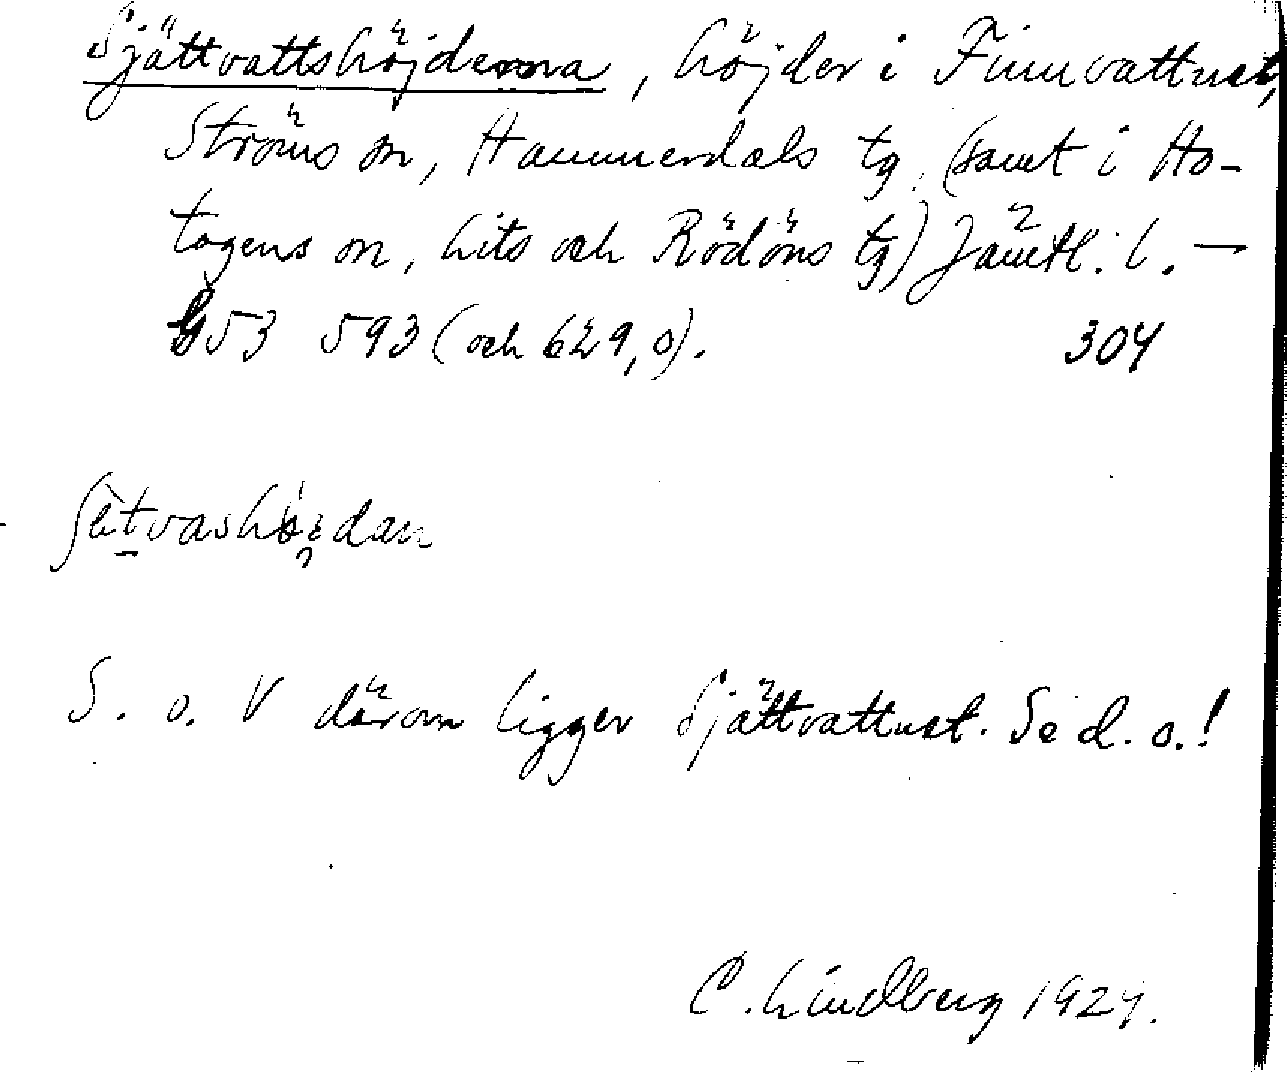 Sjättvattshöjderna, höjder i Finnvattnet,
Ströms sn, Hammerdals tg (samt i Ho-
togens sn, Lits och Rödöns tg) Jämtl. l. —
G53 593 (och 629,0). 304
ʃètvashö̀i̯dan
S. o. V därom ligger Sjättvattnet. Se d. o.!
C. Lindberg 1924.